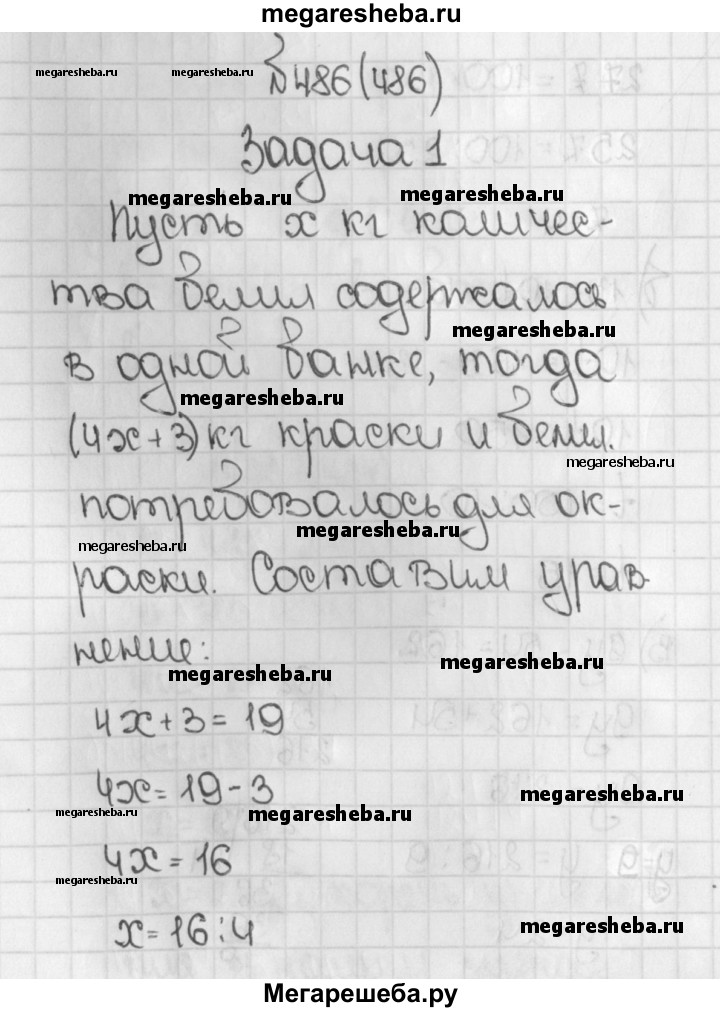 megaresheba.ru
megaresheba.ru megaresheba.ru
№486(486)
Задача 1
megaresheba.ru megaresheba.ru
Пусть x кг количес-
тва белил содержалось
megaresheba.ru
в одной банке, тогда
megaresheba.ru
(4x+3)кг краски и белил.
megaresheba.ru
потребовалось для ок-
megaresheba.ru
megaresheba.ru
раски. Составим урав-
нение:
megaresheba.ru
megaresheba.ru
4x+3=19
4x=19-3
megaresheba.ru
megaresheba.ru megaresheba.ru
4x=16
megaresheba.ru
x=16:4
megaresheba.ru
Мегарешеба.ру